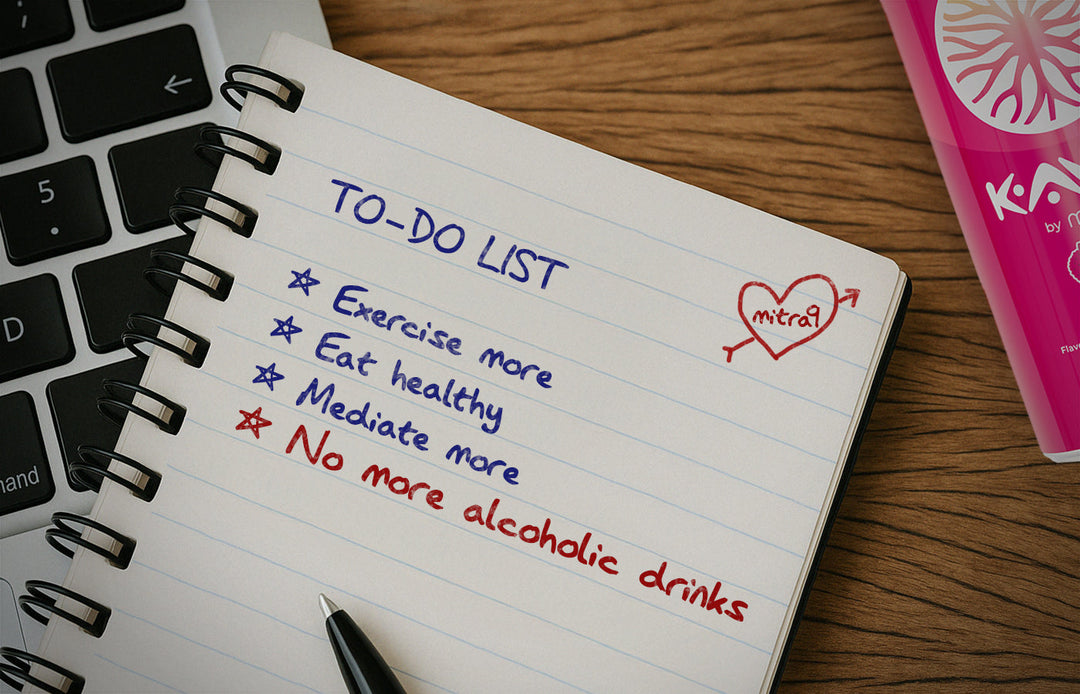 5
D
TO-DO LIST
Exercise more
Eat healthy
Mediate more
No more alcoholic drinks
mitra9
by